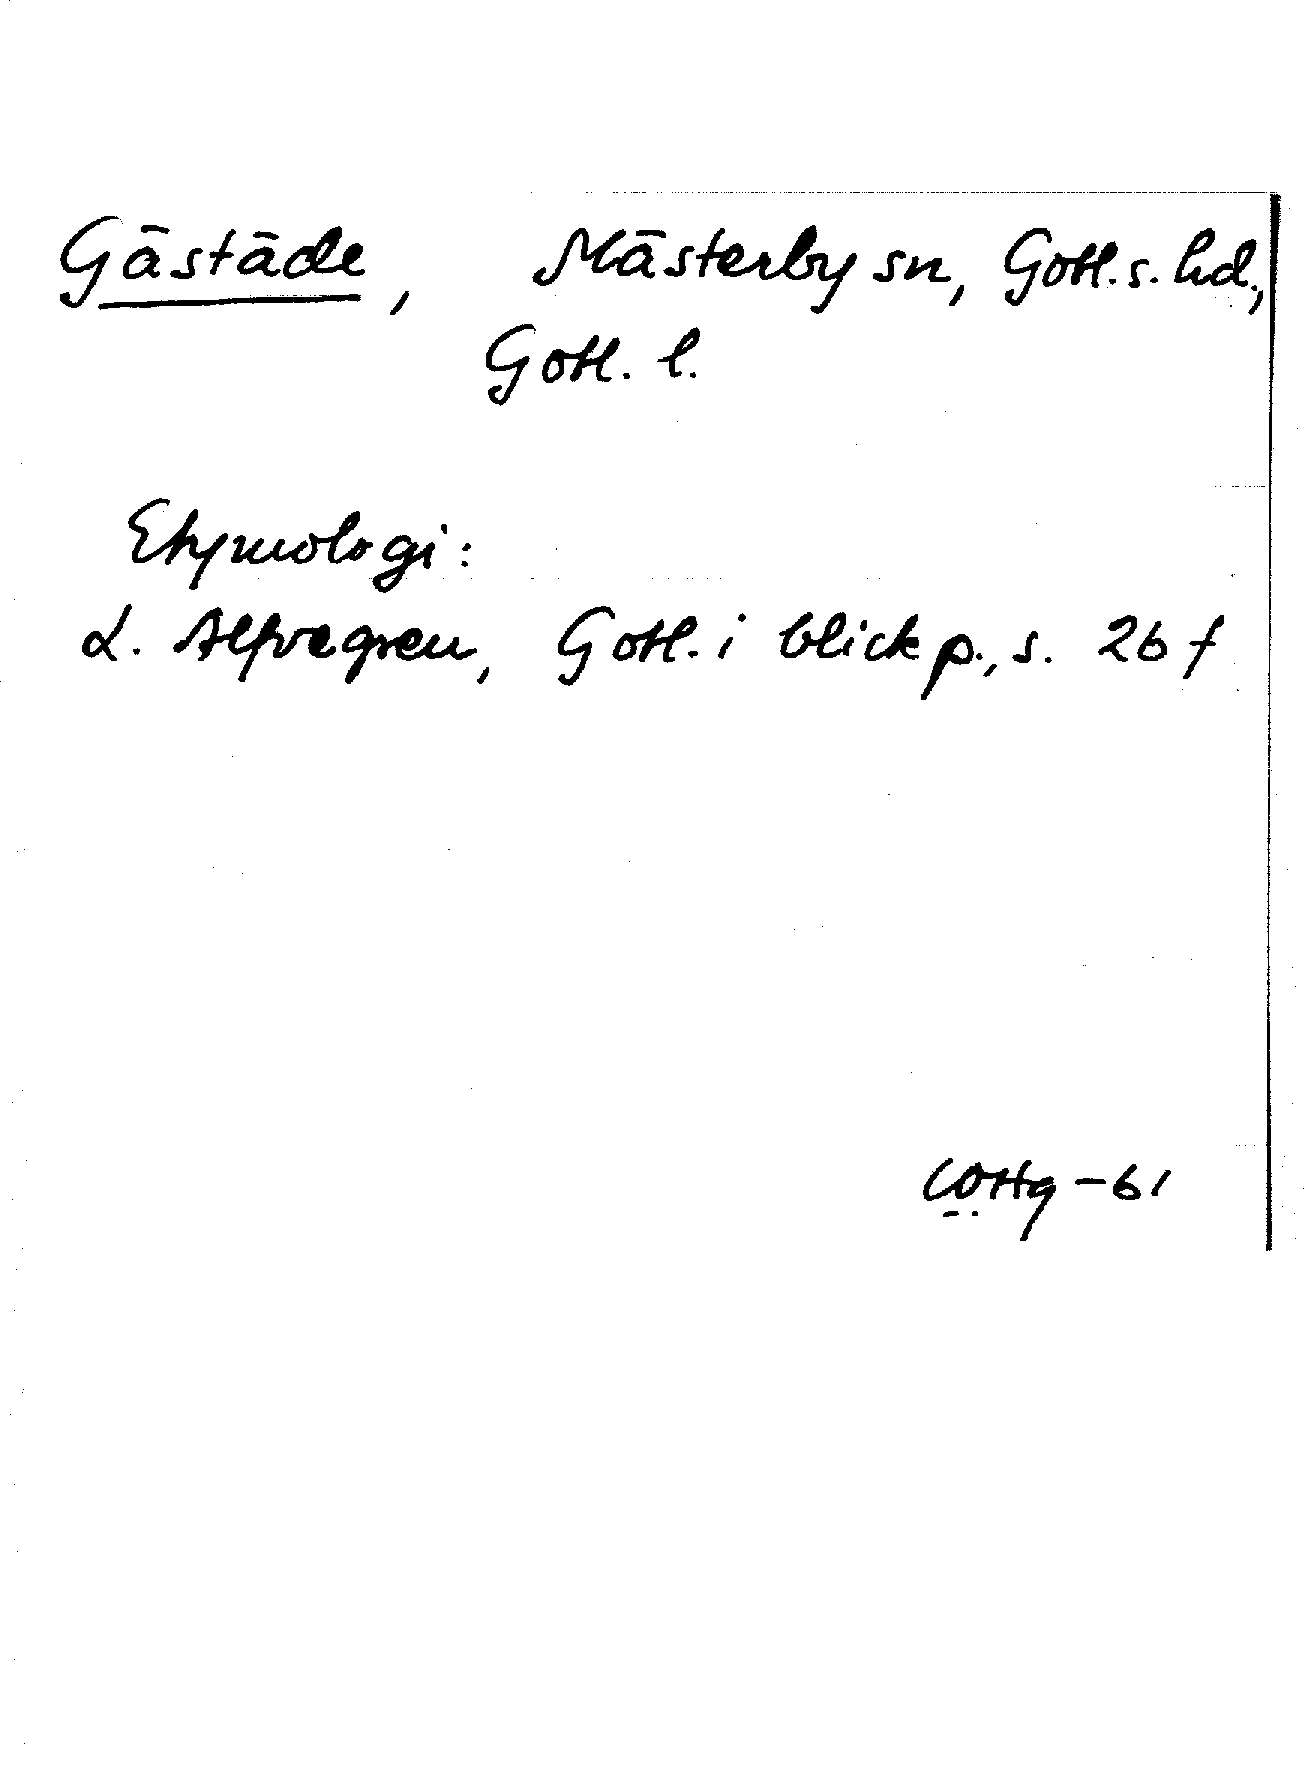 Gästäde, Mästerby sn, Gotl. s. hd.,
Gotl. l.
Etymologi:
L. Alfvegren, Gotl. i blickp., s. 26 f